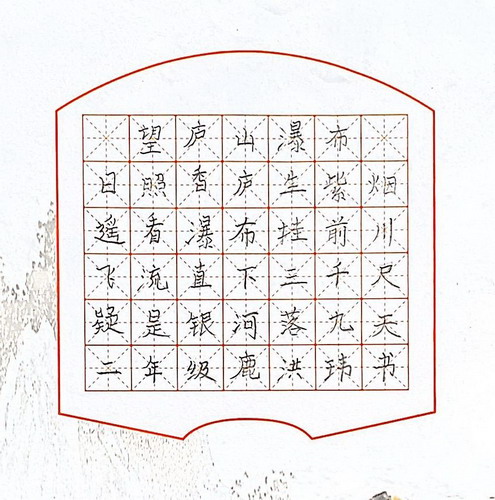 望庐山瀑布
日照香庐生紫烟
遥看瀑布挂前川
飞流直下三千尺
疑是银河落九天
二年级鹿洪玮书